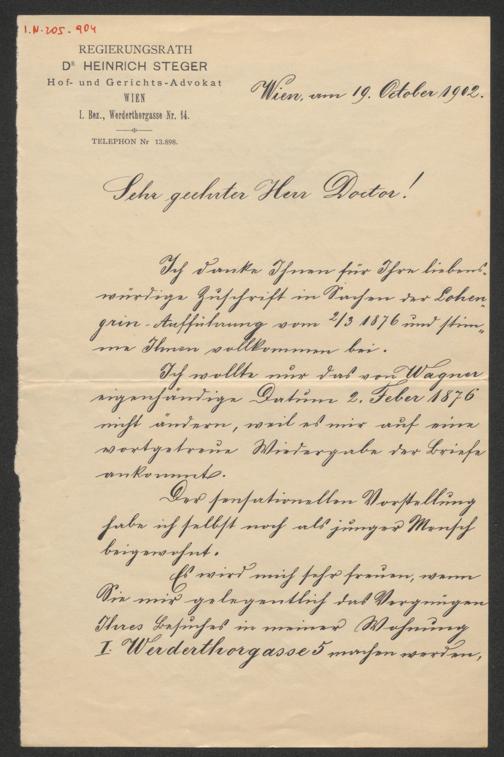 I.N. 205.904
REGIERUNGSRATH
DR HEINRICH STEGER
Hof- und Gerichts-Advokat
WIEN
I. Bez., Werderthorgasse Nr. 14.
TELEPHON Nr 13.898.
Wien, am 19. October 1902.
Sehr geehrter Herr Doctor!
Ich danke Ihnen für Ihre liebens-
würdige Zuschrift in Sachen der Lohen-
grin-Aufführung vom 2/3 1876 und stim-
me Ihnen vollkommen bei.
Ich wollte nur das von Wagner
eigenhändige Datum 2. Feber 1876
nicht ändern, weil es mir auf eine
wortgetreue Wiedergabe der Briefe
ankommt.
Der sensationellen Vorstellung
habe ich selbst noch als junger Mensch
beigewohnt.
Es wird mich sehr freuen, wenn
Sie mir gelegentlich das Vergnügen
Ihres Besuches in meiner Wohnung
I. Werderthorgasse 5 machen werden,